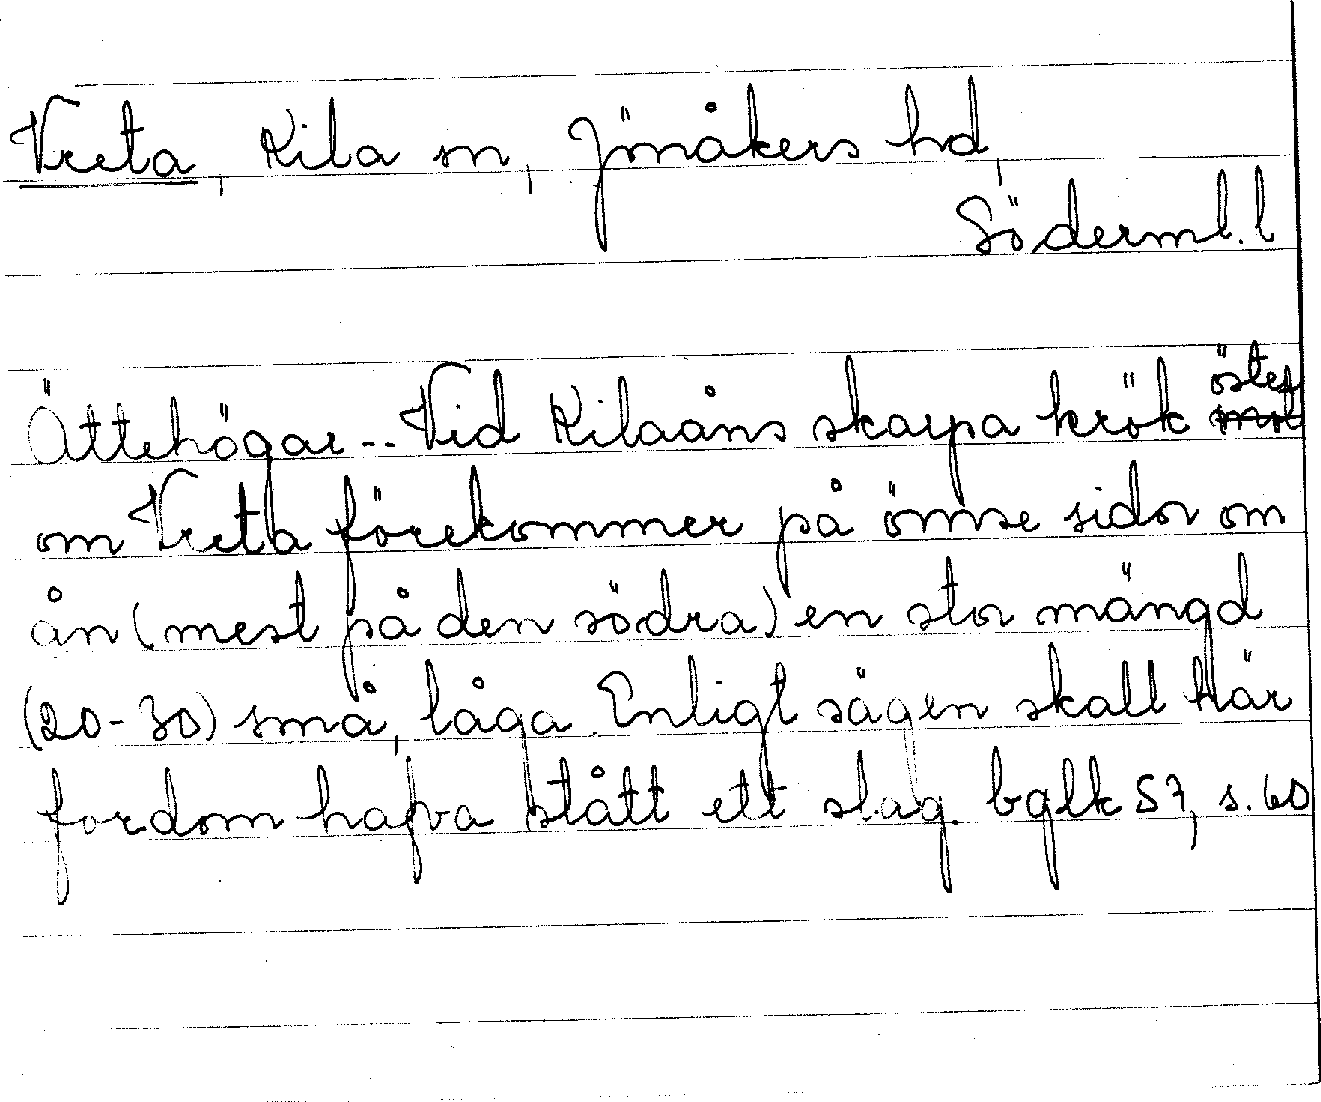 Vreta, Kila sn, Jönåkers hd,
Söderml. l
Ättehögar -- Vid Kilaåns skarpa krök öster
om Vreta förekommer på ömse sidor om
ån (mest på den södra) en stor mängd
(20-30) små, låga. Enligt sägen skall här
fordom hafva stått ett slag. bglk 57, s. 60